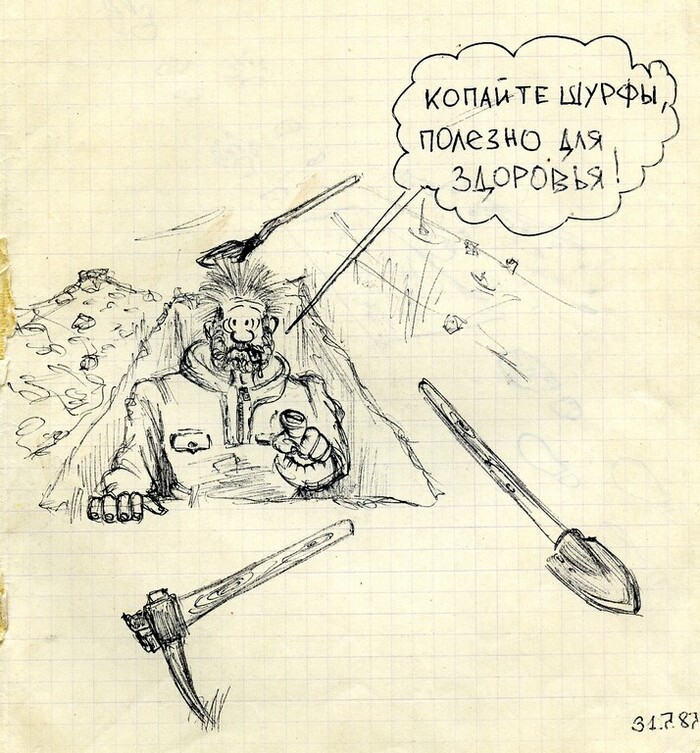 КОПАЙТЕ ШУРФЫ,
ПОЛЕЗНО ДЛЯ
ЗДОРОВЬЯ!
31.7.87